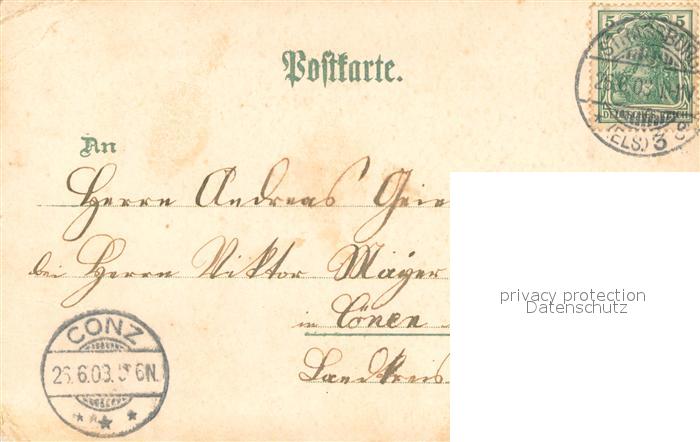 Postkarte.
5 5
DEUTSCHES REICH
STRASSBURG
(ELS.) 3
An
Herrn Andreas
bei Herrn Viktor Mayer
in Cönen
Landkreis
CONZ
26.6.03. 6N.
privacy protection
Datenschutz